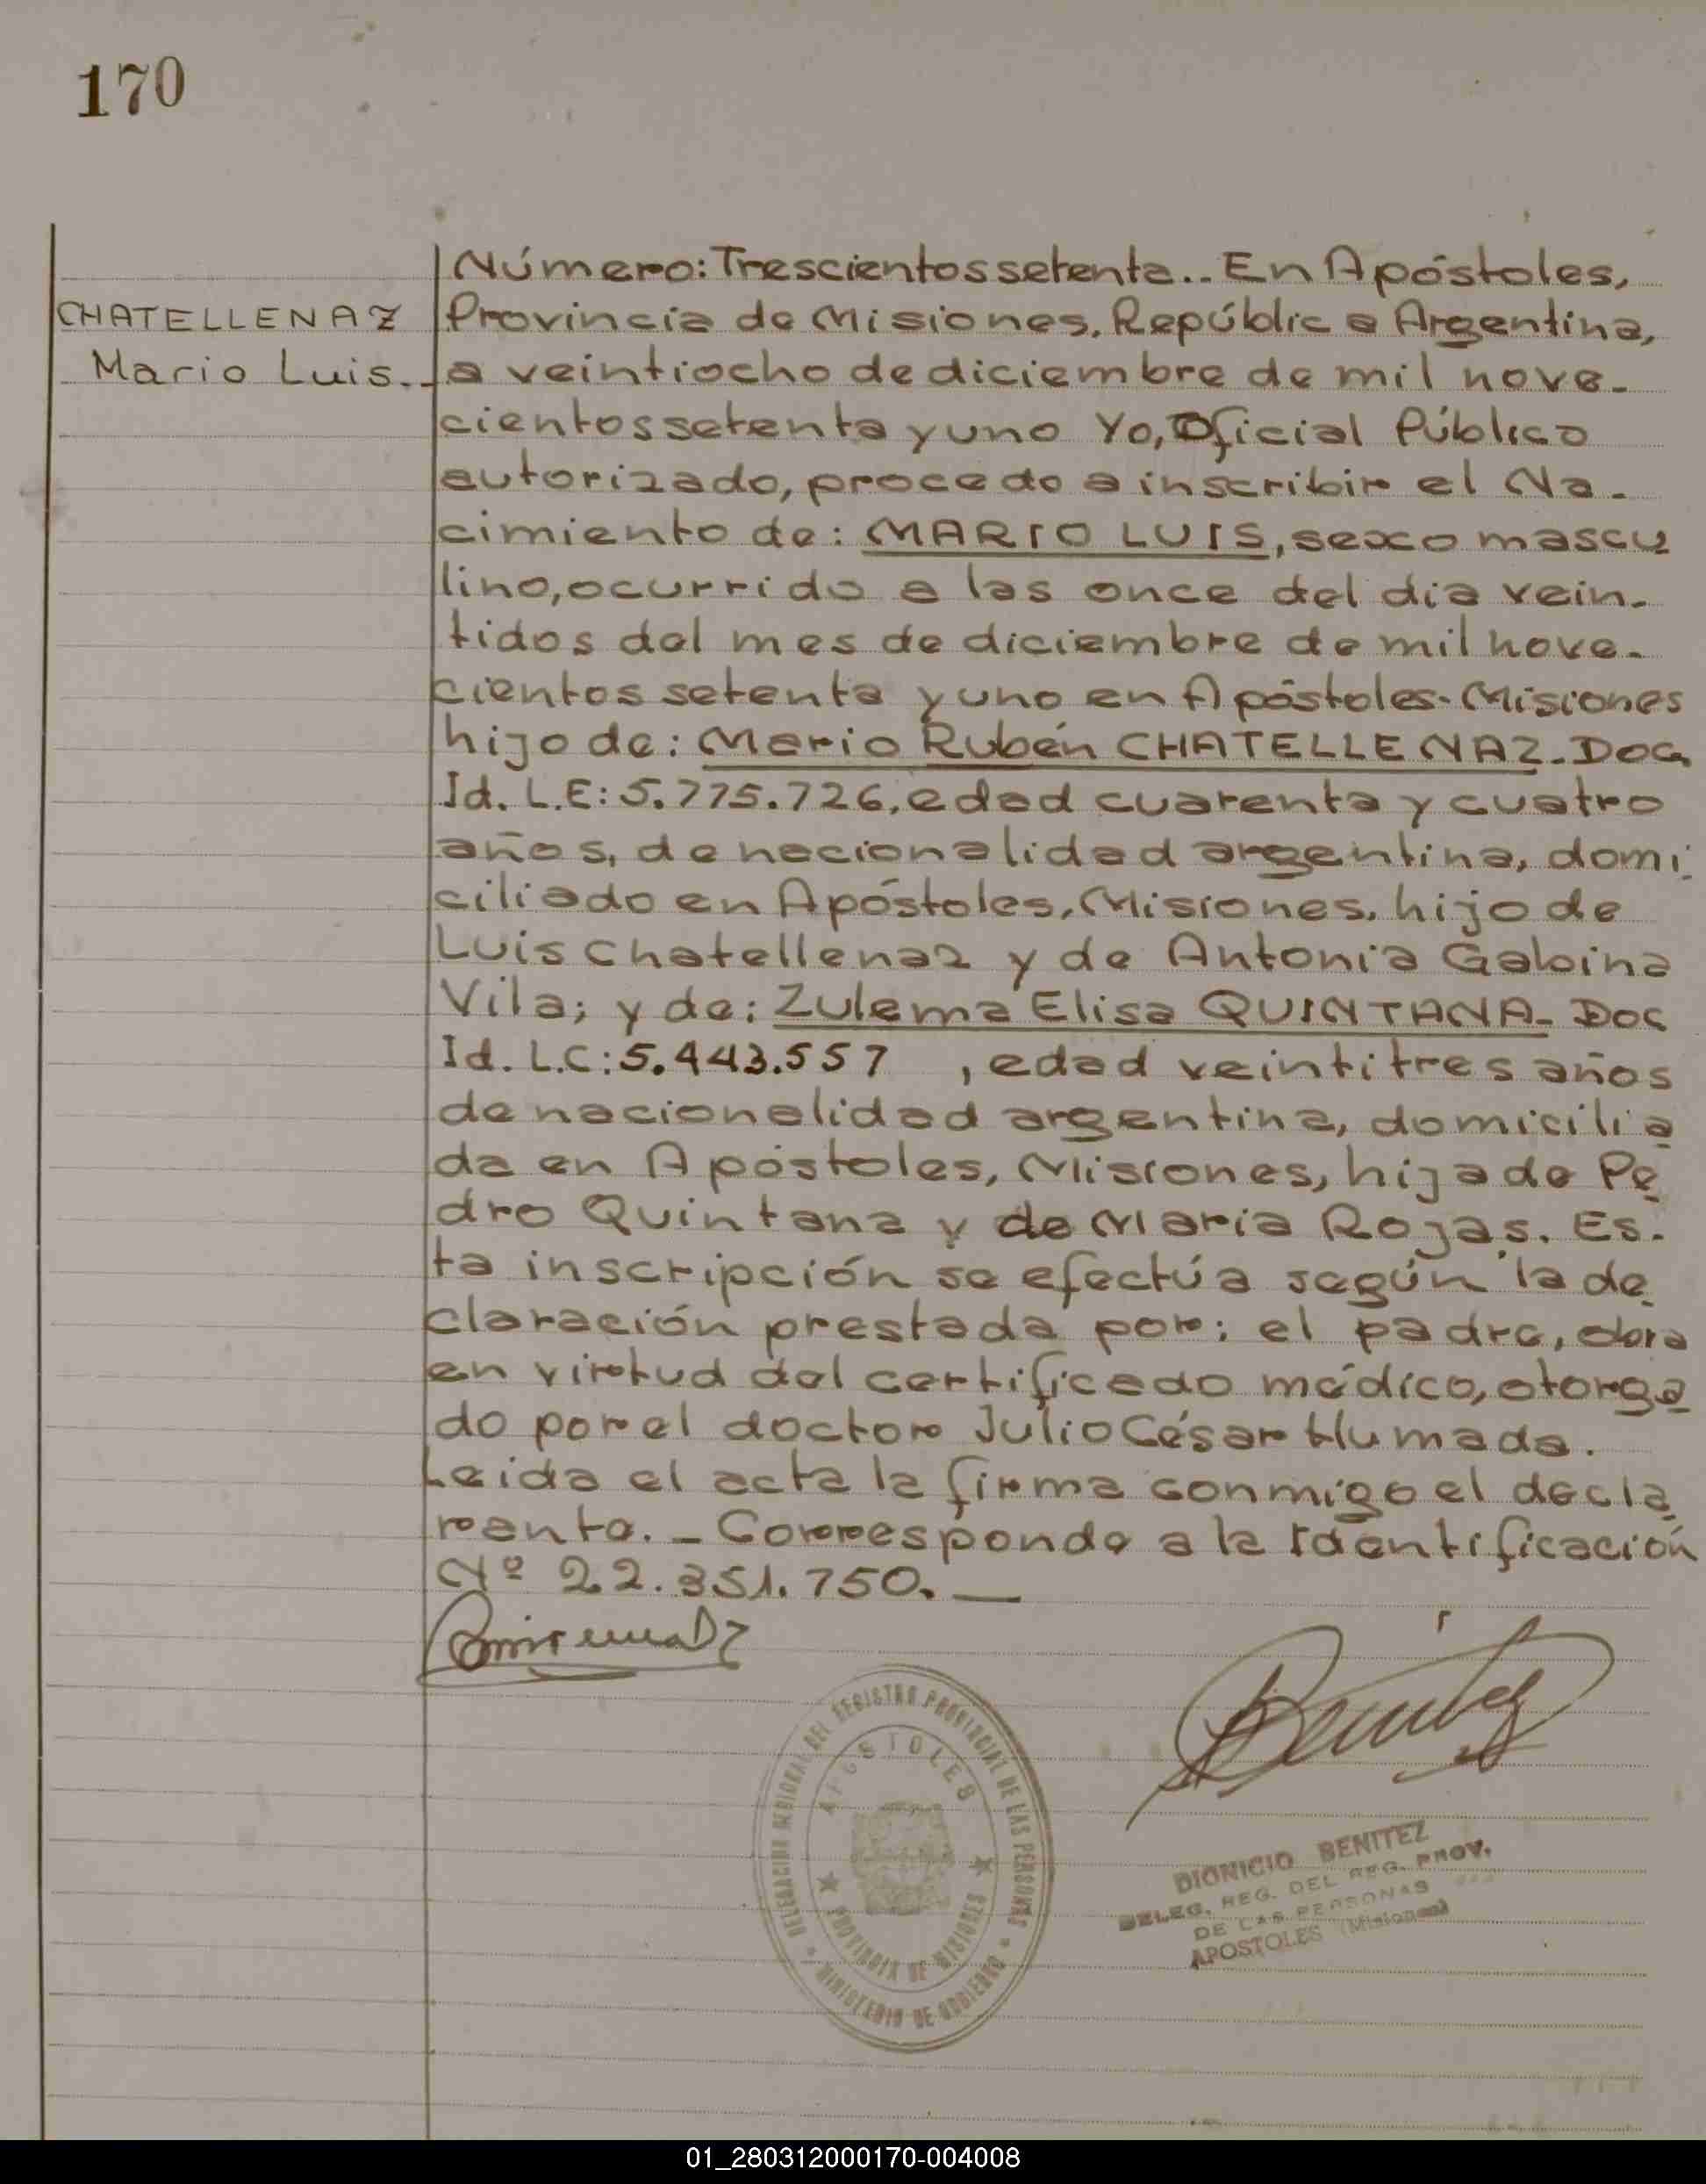 170
Número: Trescientos setenta.. En Apóstoles,
CHATELLENAZ
Mario Luis.-
Provincia de Misiones, República Argentina,
a veintiocho de diciembre de mil nove-
cientos setenta y uno Yo, Oficial Público
autorizado, procedo a inscribir el Na-
cimiento de: MARIO LUIS, sexo mascu
lino, ocurrido a las once del dia vein-
tidos del mes de diciembre de mil nove-
cientos setenta y uno en Apóstoles-Misiones
hijo de: Mario Rubén CHATELLENAZ-Doc.
Id. L.E: 5.775.726, edad cuarenta y cuatro
años, de nacionalidad argentina, domi
ciliado en Apóstoles, Misiones, hijo de
Luis Chatellenaz y de Antonia Gabina
Vila; y de: Zulema Elisa QUINTANA- Doc
Id. L.C: 5.443.557 , edad veintitres años
de nacionalidad argentina, domicilia
da en Apóstoles, Misiones, hija de Pe
dro Quintana y de Maria Rojas. Es-
ta inscripción se efectúa según la de
claración prestada por: el padre, obra
en virtud del certificado médico, otorga
do por el doctor Julio César Humada.
Leida el acta la firma conmigo el decla
rante. - Corresponde a la Identificación
Nº 22.351.750. —
Benitez
DELEGACION REGIONAL DEL REGISTRO PROVINCIAL DE LAS PERSONAS
APOSTOLES
PROVINCIA DE MISIONES
MINISTERIO DE GOBIERNO
DIONICIO BENITEZ
DELEG. REG. DEL REG. PROV.
DE LAS PERSONAS
APOSTOLES (Misiones)
01_280312000170-004008